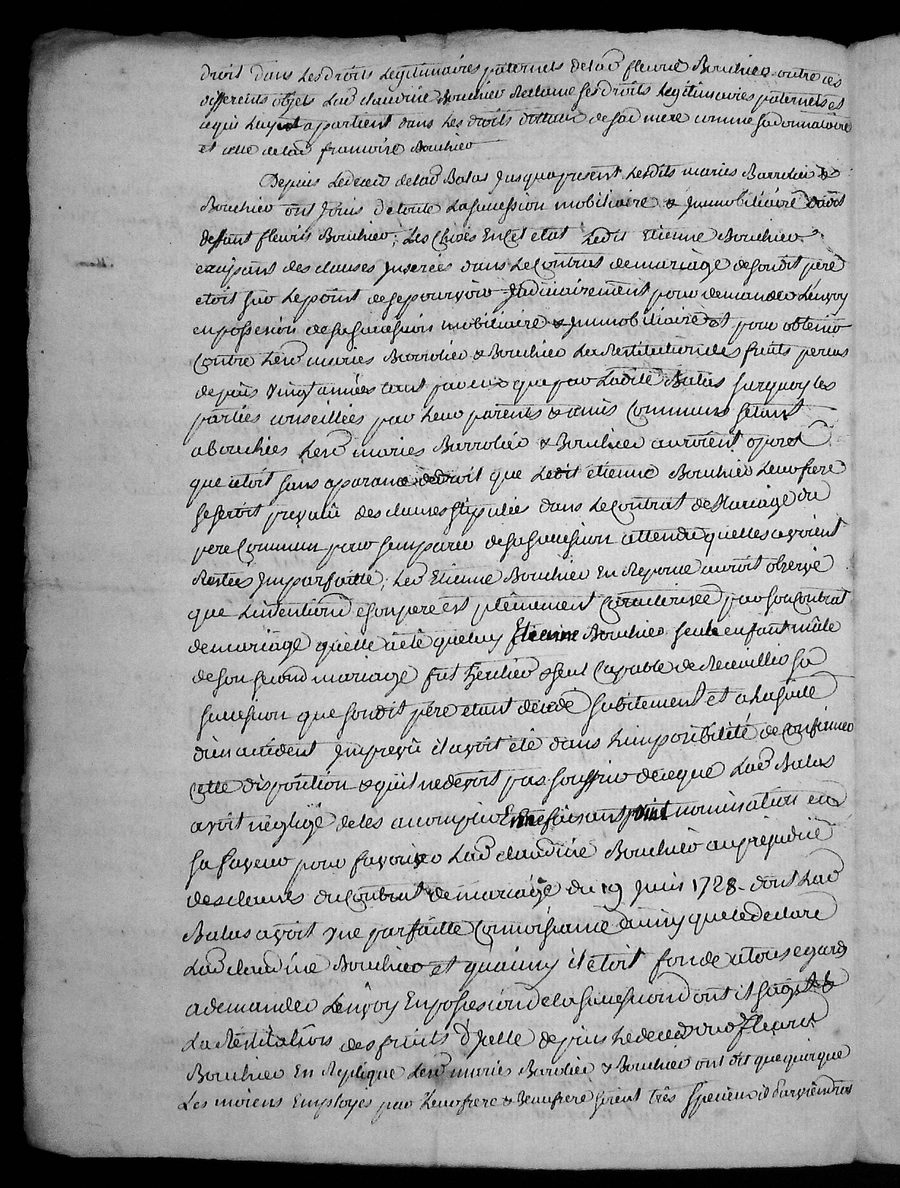 droit dans Les droits Legitimaires paternels delad fleurie Bouchier outre ces
differents objets Lad claudine Bouchier Reclame ses droits Legitimaires paternels et
ce qui Luy appartient dans Les droits dittaux desad mere comme sa donnataire
et celle delad francoise Bouchier
Depuis Ledeced delad Balas Jusqu'a present Lesdits maries Barrolier &
Bouchier ont Jouis de toute La sucession mobiliaire & Immobiliaire dudit
deffunt fleuris Bouchier; Les Choses En Cet etat Ledit Etienne Bouchier
excipant des clauses Inserées dans Le Contrat de mariage de son dit pere
etoit sur Le point de se pourvoir Judiciairement pour demander L'envoy
en possession de sa sucession mobiliaire & Immobiliaire et pour obtenir
Contre Lesd maries Barrolier & Bouchier La Restitution des fruits percus
depuis Vingt années tant par eux que par Ladite Balas surquoy Les
parties conseillées par Leur parents & amis Communs setant
abouchées Lesd maries Barrolier & Bouchier auroient oposé
que cetoit sans aparance de droit que Ledit etienne Bouchier Leur frere
se seroit prevalu des clauses stipulées dans Le Contrat de Mariage du
pere Commun pour semparer de sa sucession attendu quelles avoient
Restées Imparfaitte; Led Etienne Bouchier En Reponse auroit observé
que L'intention de son pere est pleinement Caracterisée par son Contrat
de mariage quelle a eté que Luy Etienne Bouchier seul enfant mâle
de son second mariage fut heritier & seul Capable de Recueillir sa
sucession que son dit pere etant decedé subitement et a La suite
d'un accident Impreveu il avoit eté dans L'impossibilité de Confirmer
Cette disposition & qu'il ne devoit pas souffrir de ce que Lad Balas
avoit negligé de les accomplir En ne faisant point nomination en
sa faveur pour favoriser Lad claudine Bouchier au prejudice
des clauses du Contrat de mariage du 19 Juin 1728 dont Lad
Balas avoit une parfaitte Connoissance ainsy que Le declare
Lad claudine Bouchier et qu'ainsy il etoit fondé a tous egards
a demander L'envoy En possession de la sucession dont il sagit &
La Restitution des fruits d'Icelle depuis Le deced dud fleuris
Bouchier En Replique Lesd maries Barolier & Bouchier ont dit que quoique
Les moiens Employés par Leur frere & Beaufrere soient très specieux il parviendroit